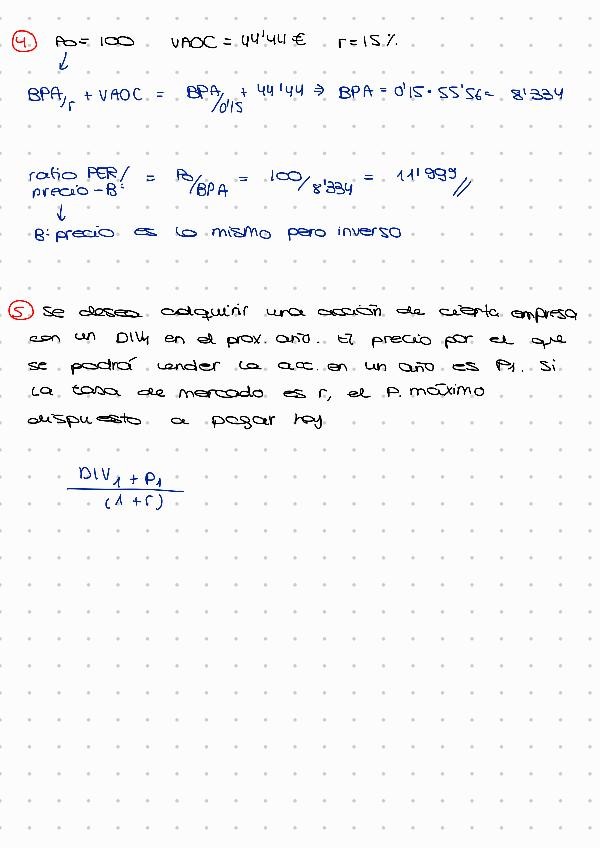 4. P0 = 100 VAOC = 44'44 € r = 15%
BPA/r + VAOC = BPA/0'15 + 44'44 ⇒ BPA = 0'15 · 55'56 = 8'334
ratio PER/ precio-Bº = P0/BPA = 100/8'334 = 11'999//
Bº precio es lo mismo pero inverso
5. Se desea adquirir una acción de cierta empresa
con un DIV1 en el prox. año. El precio por el que
se podrá vender la acc. en un año es P1. Si
la tasa de mercado es r, el P. máximo
dispuesto a pagar hoy
DIV1 + P1
(1 + r)